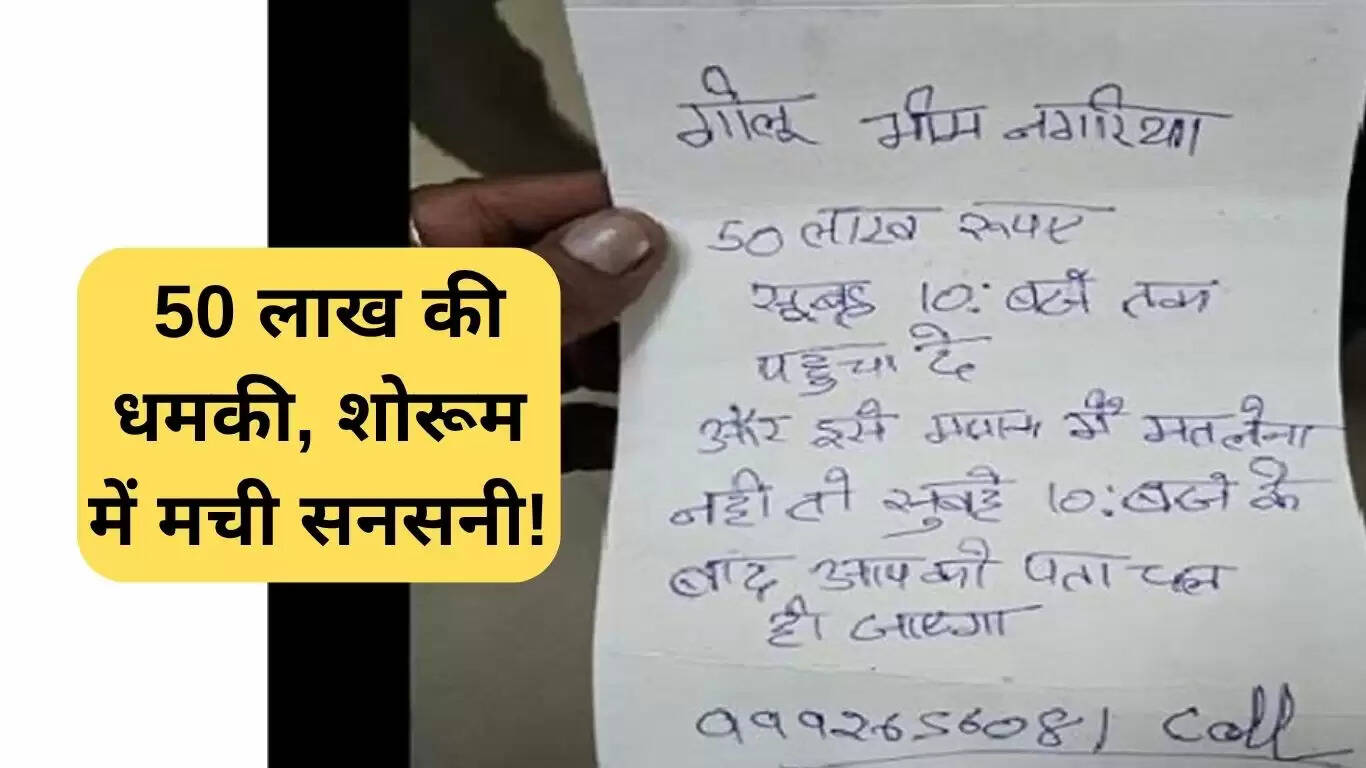 50 लाख की
धमकी, शोरूम
में मची सनसनी!
गोलू मीम नगरिया
50 लाख रूपए
सूबह 10: बजे तक
पहुचा दे
और इसे मजाक में मत लेना
नही तो सुबह 10: बजे के
बाद आपको पता चल
ही जाएगा
9992656081 Call